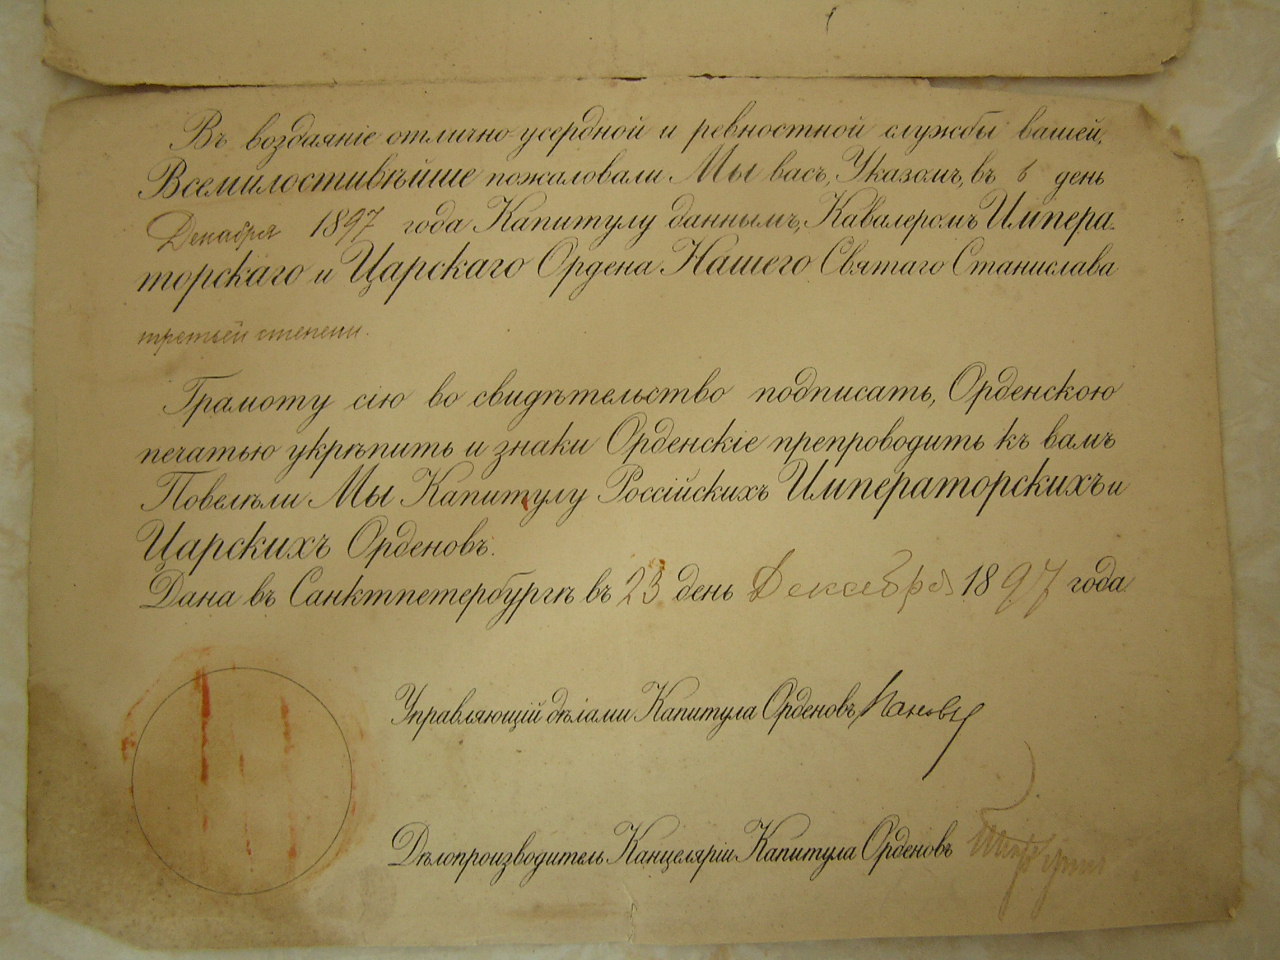 Въ воздаяніе отлично усердной и ревностной службы вашей,
Всемилостивѣйше пожаловали Мы васъ, Указомъ, въ 6 день
Декабря 1897 года Капитулу даннымъ, Кавалеромъ Импера-
торскаго и Царскаго Ордена Нашего Святаго Станислава
третьей степени.
Грамоту сію во свидѣтельство подписать, Орденскою
печатью укрѣпить и знаки Орденскіе препроводить къ вамъ
Повелѣли Мы Капитулу Россійскихъ Императорскихъ и
Царскихъ Орденовъ.
Дана въ Санктпетербургѣ въ 23 день Декабря 1897 года
Управляющій дѣлами Капитула Орденовъ,
Дѣлопроизводитель Канцеляріи Капитула Орденовъ